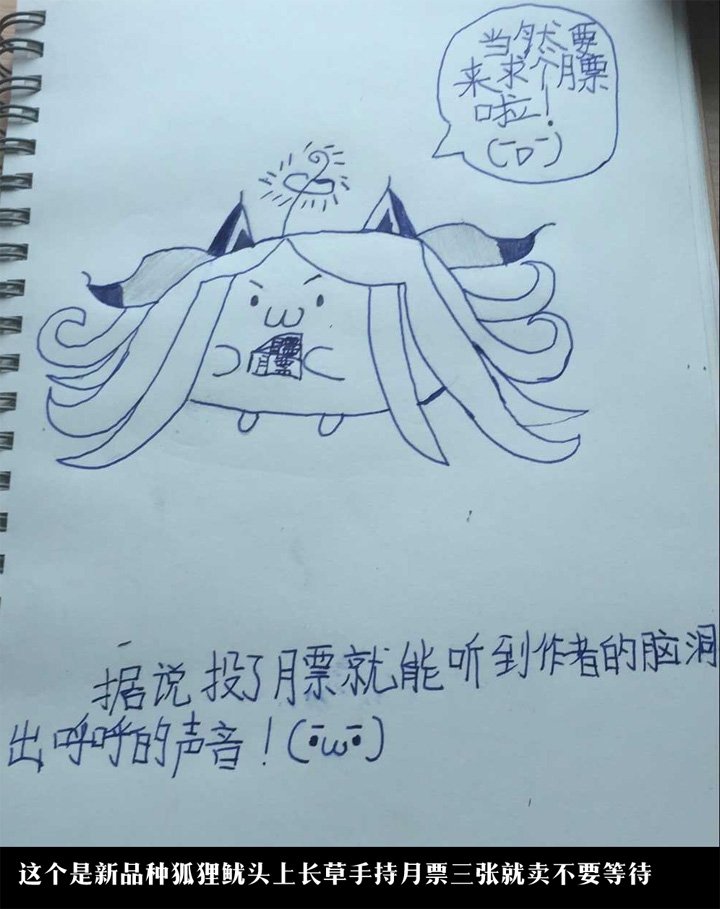 当然要
来求个月票
啦！
(￣D￣)
月票
据说投了月票就能听到作者的脑洞
出呼呼的声音！(•̄ω•̄)
这个是新品种狐狸鱿头上长草手持月票三张就卖不要等待